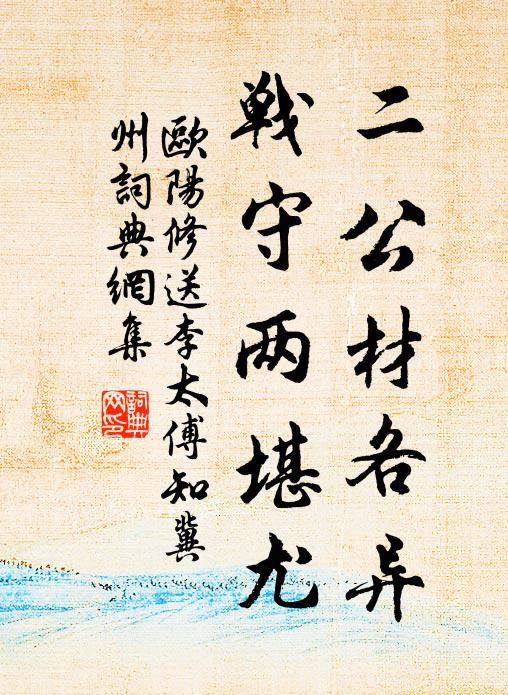 二公材各异
戦守两堪尤
歐陽修送李太傅知冀
州詞典網集
詞典网印